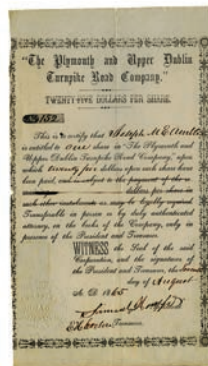 "The Plymouth and Upper Dublin
Turnpike Road Company."
TWENTY FIVE DOLLARS PER SHARE.
No. 152
This is to certify that Joseph M.
is entitled to One share in "The Plymouth and
Upper Dublin Turnpike Road Company," upon
which twenty five dollars upon each share have
been paid, and is subject to the payment of the
dollars per share in
such other instalments as may be legally required
Transferable in person or by duly authenticated
attorney, on the books of the Company, only in
presence of the President and Treasurer.
WITNESS the Seal of the said
Corporation, and the signatures of
the President and Treasurer, the
day of August
A. D. 1865
Samuel
Treasurer.